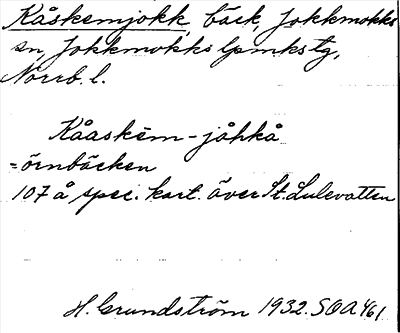 Kåskemjokk, bäck, Jokkmokks
sn, Jokkmokks lpmkstg,
Norrb. l.
Kåaskēm-jåhkå
=örnbäcken
107 å spec. kart. över St. Lulevatten
H. Grundström 1932. SOA 461